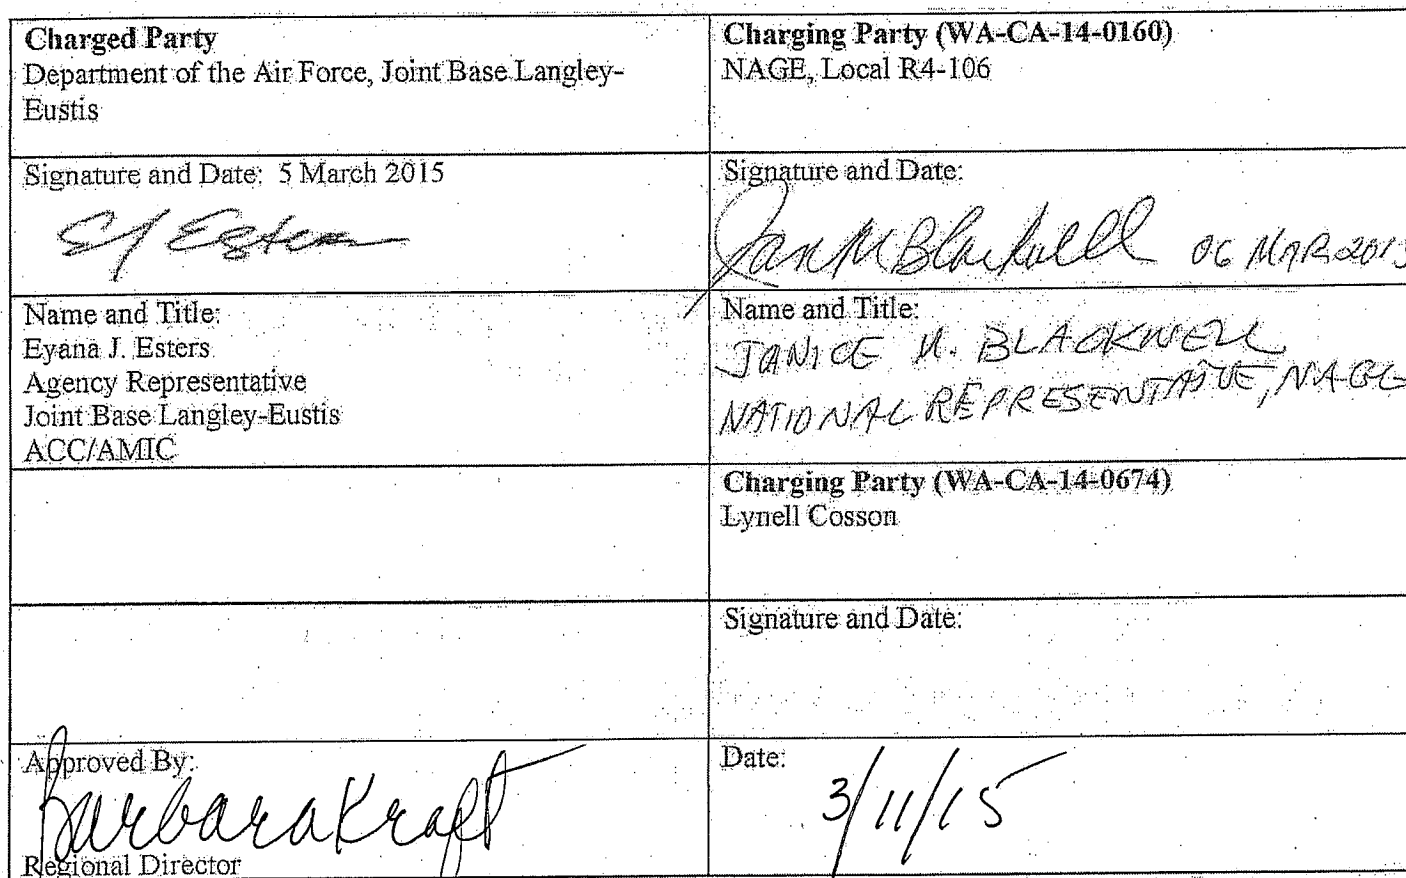 Charged Party
Department of the Air Force, Joint Base Langley-
Eustis
Charging Party (WA-CA-14-0160)
NAGE, Local R4-106
Signature and Date: 5 March 2015
EJ Esters
Signature and Date:
Jan M Blackwell 06 MAR 2015
Name and Title:
Eyana J. Esters
Agency Representative
Joint Base Langley-Eustis
ACC/AMIC
Name and Title:
JANICE M. BLACKWELL
NATIONAL REPRESENTATIVE, NAGE
Charging Party (WA-CA-14-0674)
Lynell Cosson
Signature and Date:
Approved By:
Barbara Kraft
Regional Director
Date:
3/11/15